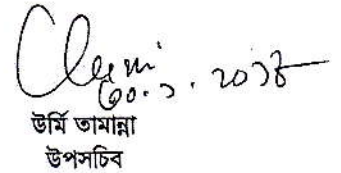 ৩০.১.২০১৮
উর্মি তামান্না
উপসচিব